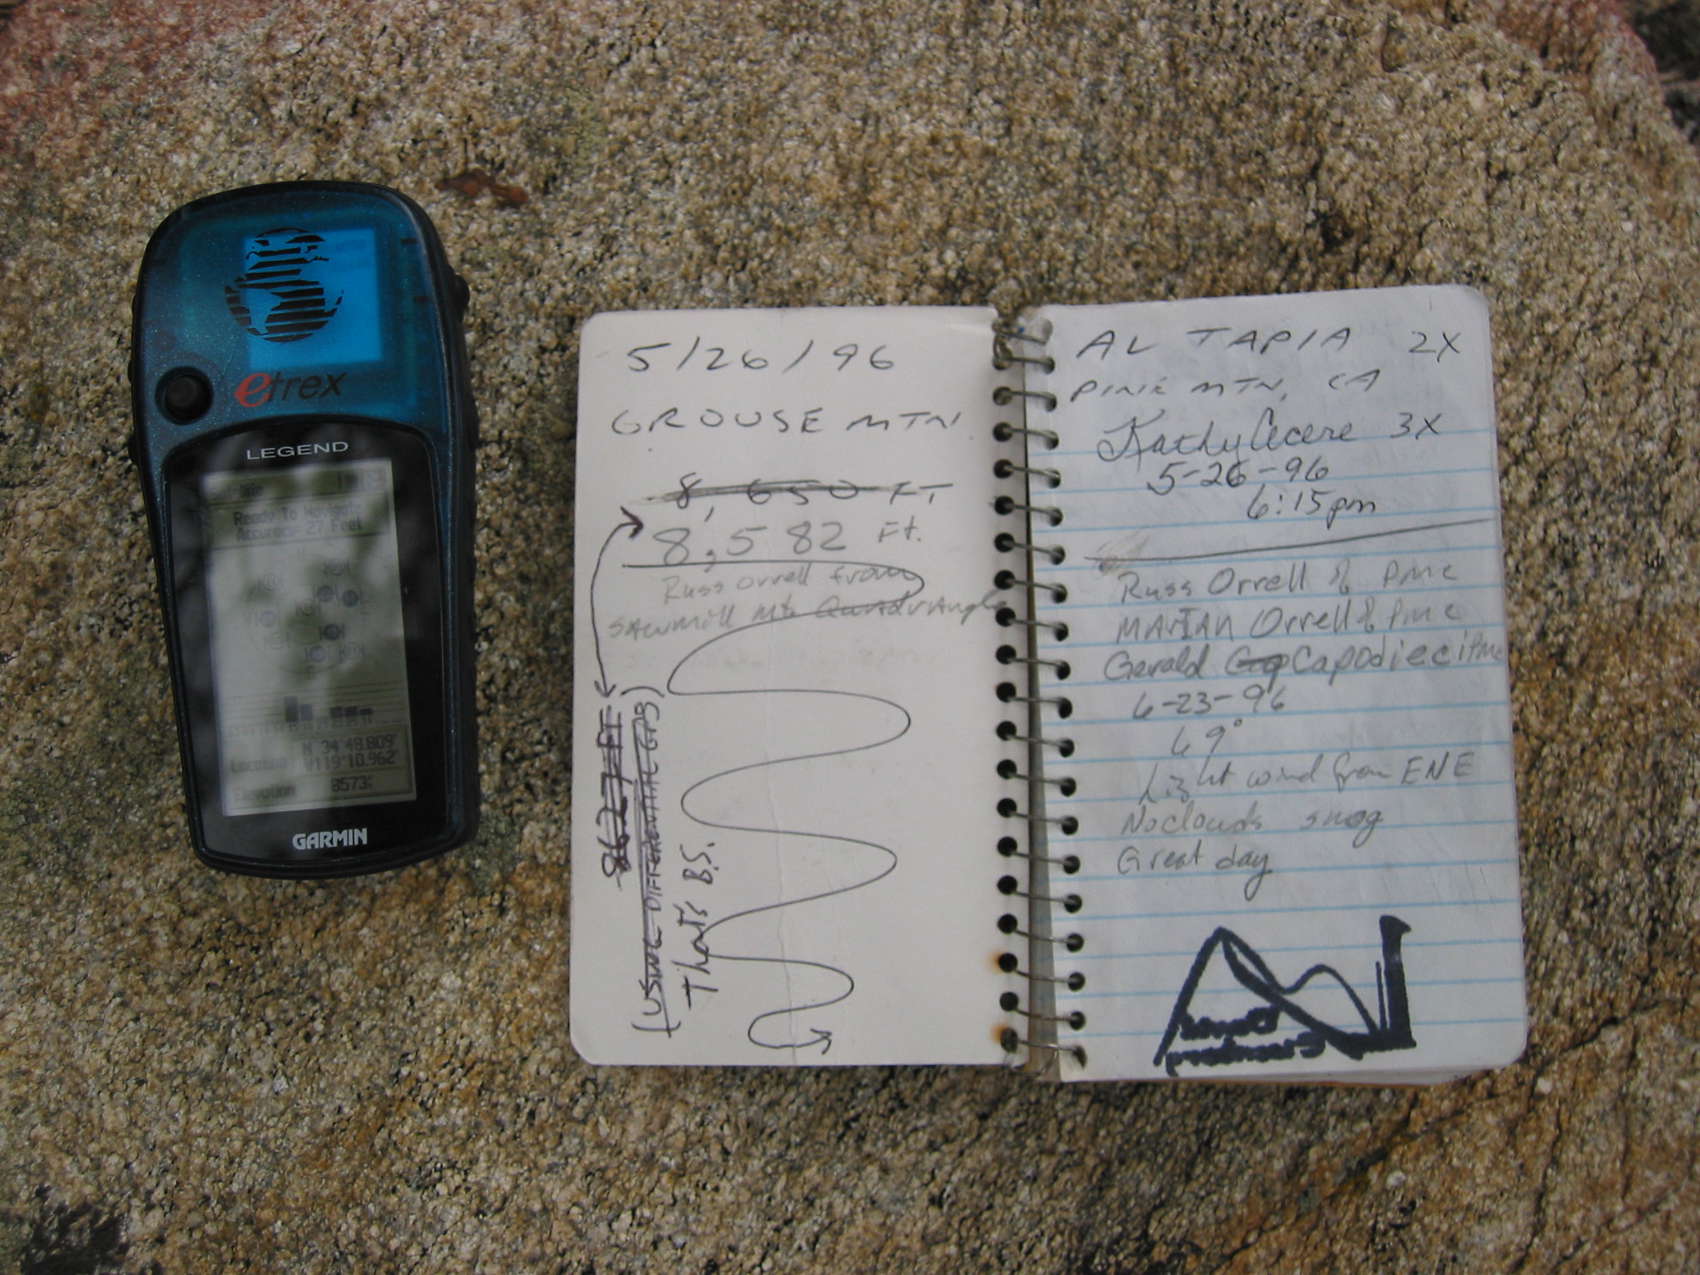 etrex
LEGEND
Ready to Navigate
Accuracy 27 Feet
N 34°48.809'
Location W119°10.962'
Elevation 8573
GARMIN
5/26/96
GROUSE MTN
8,650 FT
8,582 Ft.
Russ Orrell from
SAWmill Mt. QuadrAngle
8627 FT
(USING DIFFERENTIAL GPS)
That's B.S.
AL TAPIA 2X
PINE MTN, CA
Kathy Cecere 3X
5-26-96
6:15pm
Russ Orrell of Pine
MARIAN Orrell of Pine
Gerald Cap Capodieci Pine
6-23-96
69°
Light wind from ENE
No clouds smog
Great day